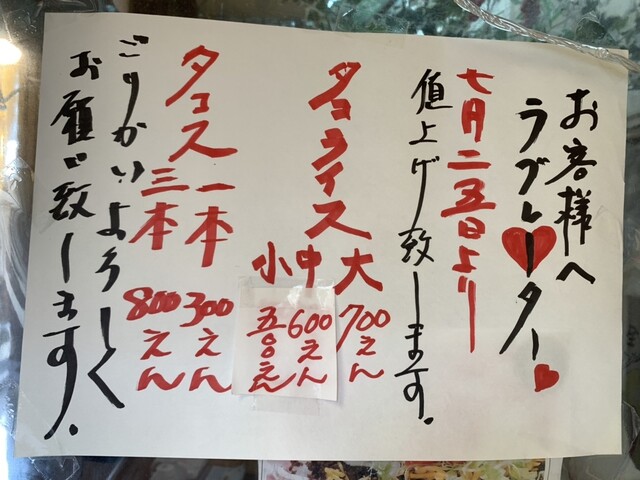 お客様へ
ラブレーター
七月二五日より
値上げ致します.
タコライス
大 700えん
中 600えん
小 五00えん
タコス 一本 300えん
三本 800えん
ごりかいよろしく
お願い致します.